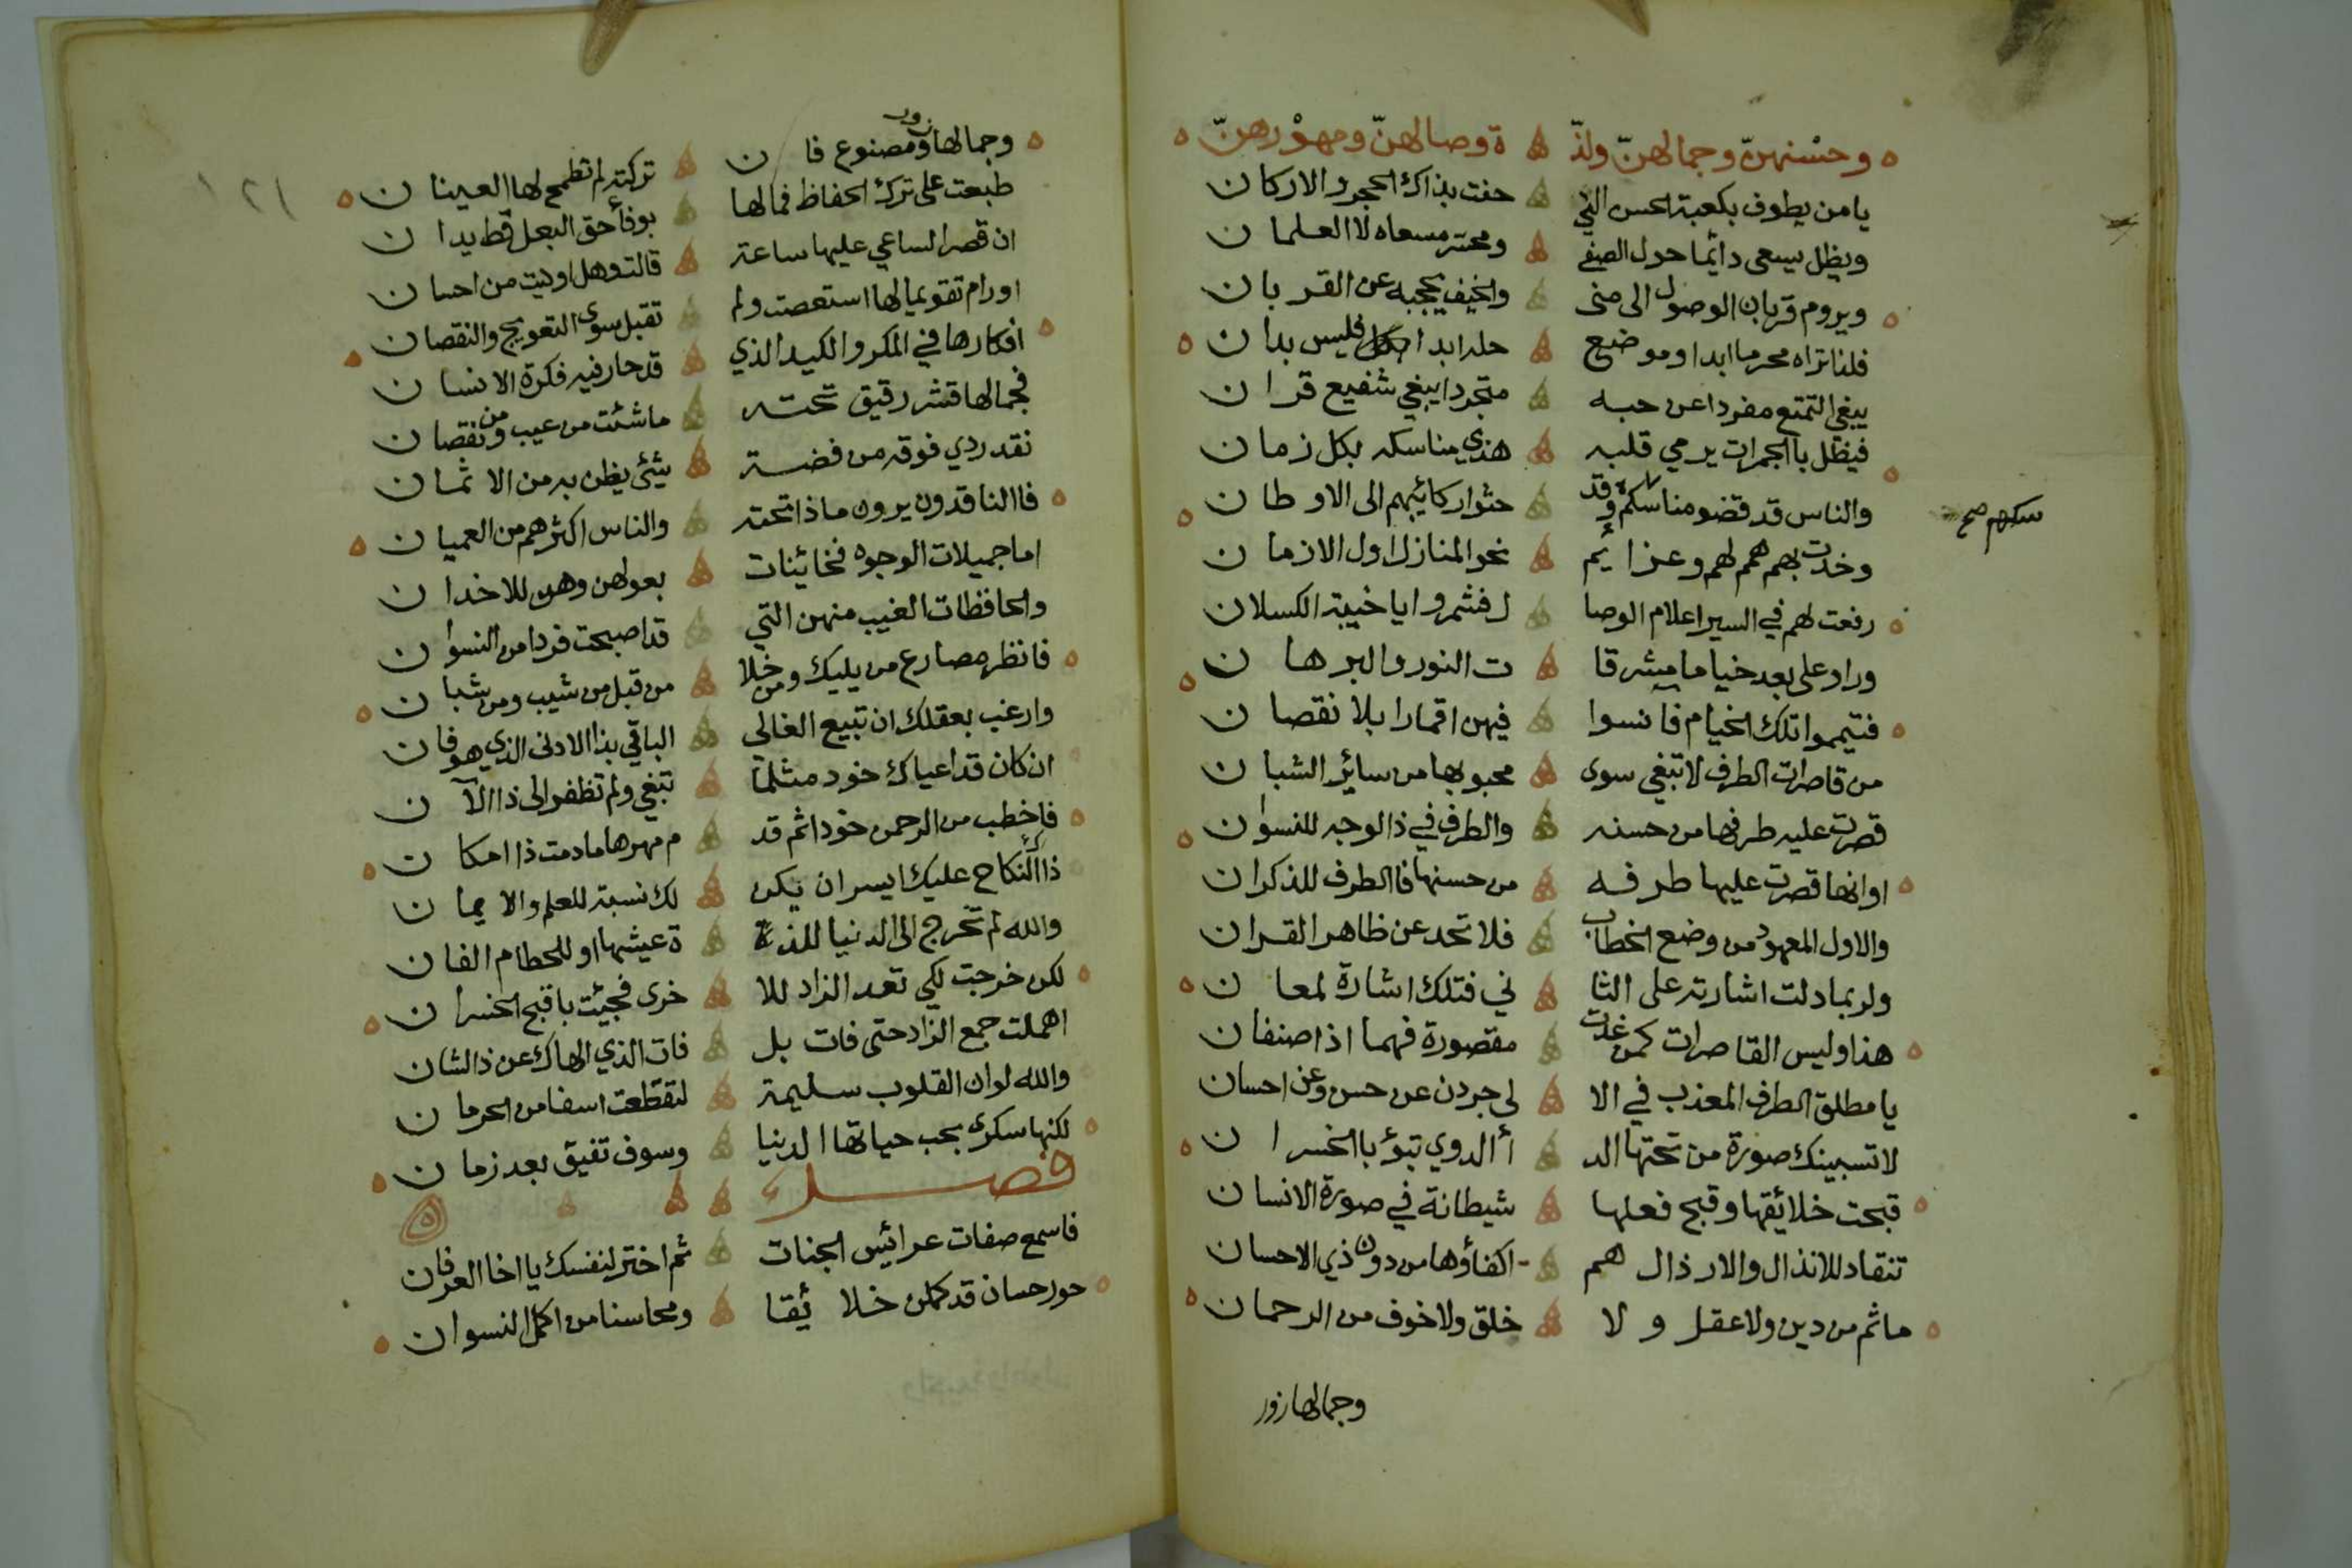 وحسْنهنّ وجمالهنّ ولذّ ة وصالهنّ ومهوْرهنّ
يا من يطوف بكعبة الحسن التي حفت بذاك الحجر والاركان
ويظل يسعى دائما حول الصفي ومحسر مسعاه لا العلمان
ويروم قربان الوصول الى منى والخيف يحجبه عن القربان
فلذا تراه محرما ابدا وموضع حله ابدا فليس بدان
يبغي التمتع مفردا عن حبه متجردا يبغي شفيع قران
فيظل بالجمرات يرمي قلبه هذي مناسكه بكل زمان
والناس قد قضو مناسكم وقد حثوا ركائبهم الى الاوطان
سكهم صح
وخدت بهم همم لهم وعزائم نحو المنازل اول الازمان
رفعت لهم في السير اعلام الوصا ل فشمروا يا خيبة الكسلان
وراو على بعد خياما مشرقا ت النور والبرهان
فتيمموا تلك الخيام فانسوا فيهن اقمارا بلا نقصان
من قاصرات الطرف لا تبغي سوى محبوبها من سائر الشبان
قصرت عليه طرفها من حسنه والطرف في ذا الوجه للنسوان
او انها قصرت عليها طرفه من حسنها فالطرف للذكران
والاول المعهود من وضع الخطاب فلا تحد عن ظاهر القران
ولربما دلت اشارته على الثا ني فتلك اشارة لمعان
هذا وليس القاصرات كمن غدت مقصورة فهما اذا صنفان
يا مطلق الطرف المعذب في الا لى جردن عن حسن وعن احسان
لا تسبينك صورة من تحتها الد أ الدوي تبؤ بالخسران
قبحت خلائقها وقبح فعلها شيطانة في صورة الانسان
تنقاد للانذال والارذال هم اكفاؤها من دون ذي الاحسان
ما ثم من دين ولا عقل ولا خلق ولا خوف من الرحمان
وجمالها زور
١٢١
وجمالها زور ومصنوع فان تركته لم تطمح لها العينان
طبعت على ترك الحفاظ فما لها بوفاء حق البعل قط يدان
ان قصر الساعي عليها ساعة قالت وهل اوليت من احسان
او رام تقويما لها استعصت ولم تقبل سوى التعويج والنقصان
افكارها في المكر والكيد الذي قد حار فيه فكرة الانسان
فجمالها قشر رقيق تحته ما شئت من عيب ومن نقصان
نقد ردي فوقه من فضة شيئ يظن به من الاثمان
فاالناقدون يرون ماذا تحته والناس اكثرهم من العميان
اما جميلات الوجوه فخائنات بعولهن وهن للاخدان
والحافظات الغيب منهن التي قد اصبحت فردا من النسوان
فانظر مصارع من يليك ومن خلا من قبل من شيب ومن شبان
وارغب بعقلك ان تبيع الغالي الباقي بذا الادنى الذي هو فان
ان كان قد اعياك خود مثلما تبغي ولم تظفر الى ذا الآن
فاخطب من الرحمن خودا ثم قد م مهرها ما دمت ذا امكان
ذاك النكاح عليك ايسر ان يكن لك نسبة للعلم والايمان
والله لم تخرج الى الدنيا للذ ة عيشها او للحطام الفان
لكن خرجت لكي تعد الزاد للا خرى فجئت باقبح الخسران
اهملت جمع الزاد حتى فات بل فات الذي الهاك عن ذا الشان
والله لو ان القلوب سليمة لتقطعت اسفا من الحرمان
لكنها سكرى بحب حياتها الدنيا وسوف تفيق بعد زمان
فصل
فاسمع صفات عرائس الجنات ثم اختر لنفسك يا اخا العرفان
حور حسان قد كملن خلائقا ومحاسنا من اكمل النسوان